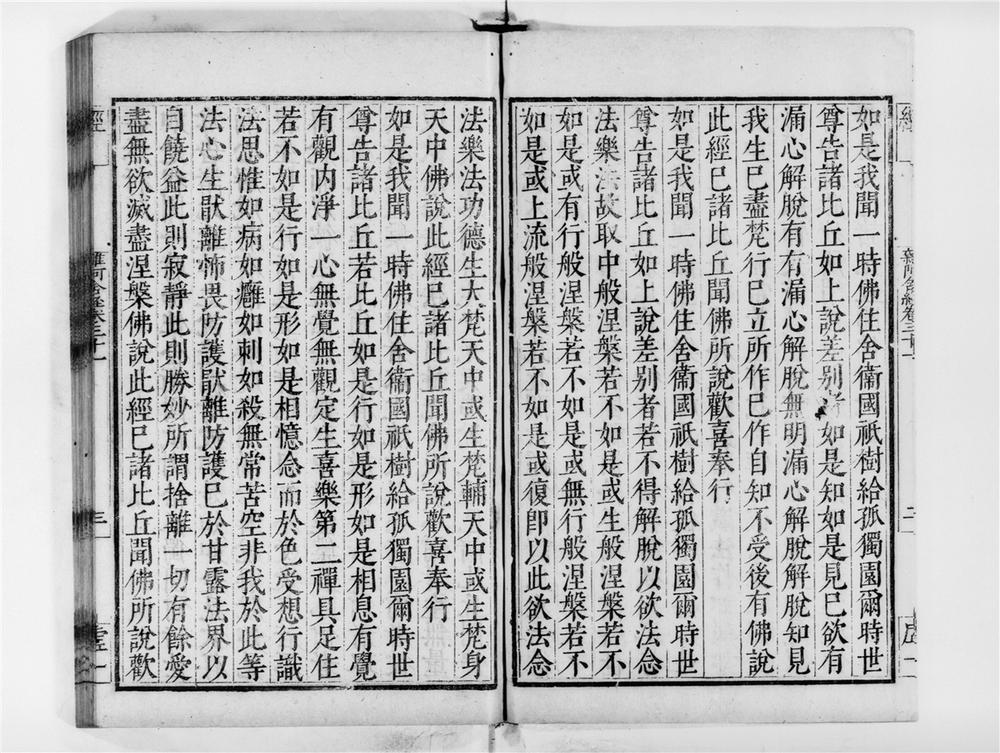 經
雜阿含經卷三十一
二
如是我聞一時佛住舍衞國祇樹給孤獨園爾時世
尊告諸比丘如上說差别者如是知如是見已欲有
漏心解脫有有漏心解脫無明漏心解脫解脫知見
我生已盡梵行已立所作已作自知不受後有佛說
此經已諸比丘聞佛所說歡喜奉行
如是我聞一時佛住舍衞國祇樹給孤獨園爾時世
尊告諸比丘如上說差别者若不得解脫以欲法念
法樂法故取中般涅槃若不如是或生般涅槃若不
如是或有行般涅槃若不如是或無行般涅槃若不
如是或上流般涅槃若不如是或復卽以此欲法念
法樂法功德生大梵天中或生梵輔天中或生梵身
天中佛說此經已諸比丘聞佛所說歡喜奉行
如是我聞一時佛住舍衞國祇樹給孤獨園爾時世
尊告諸比丘若比丘如是行如是形如是相息有覺
有觀内淨一心無覺無觀定生喜樂第二禪具足住
若不如是行如是形如是相憶念而於色受想行識
法思惟如病如癰如刺如殺無常苦空非我於此等
法心生猒離怖畏防護猒離防護已於甘露法界以
自饒益此則寂靜此則勝妙所謂捨離一切有餘愛
盡無欲滅盡涅槃佛說此經已諸比丘聞佛所說歡
經
雜阿含經卷三十一
三